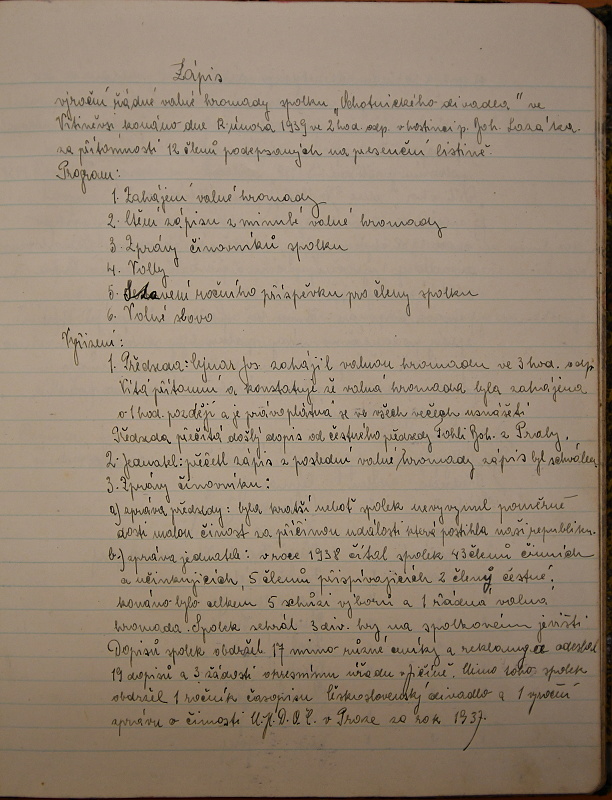 Zápis
výroční řádné valné hromady spolku „Ochotnického divadla" ve
Vitiněvsi konáno dne 12. února 1939 ve 2 hod. odp. v hostinci p. Boh. Lazárka
za přítomnosti 12 členů podepsaných na presenční listině.
Program:
1. Zahájení valné hromady
2. Čtění zápisu z minulé valné hromady
3. Zprávy činovníků spolku
4. Volby
5. Stanovení ročního příspěvku pro členy spolku
6. Volné slovo
Vyřízení:
1. Předseda: Cejnar Jos zahájil valnou hromadu ve 3 hod. odp.
Vítá přítomní a konstatuje že valná hromada byla zahájena
o 1 hod. později a je právoplatná se ve všech věcech usnášeti
Předseda přečítá došlý dopis od čestného předsedy Pohli Boh. z Prahy.
2. Jednatel: přečetl zápis z poslední valné hromady zápis byl schválen.
3. Zprávy činovníku:
a) zpráva předsedy: byla kratší neboť spolek nevyvynul poměrně
dosti malou činost za příčinou událostí která postihla naši republiku.
b.) zpráva jednatele: v roce 1938 čítal spolek 43 členů činních
a učinkujících, 5 členů přispívajících 2 členy čestné,
konáno bylo celkem 5 schůzí výborní a 1 řádná valná
hromada. Spolek sehrál 3 div. hry na spolkovém jevišti
Dopisů spolek obdržel 17 mimo různé ceníky a reklamy a odeslal
19 dopisů a 3 žádosti okresnímu úřadu v Jičíně. Mimo toho spolek
obdržel 1 ročník časopisu Československý divadlo a 1 výroční
zprávu o činosti Ú.J.D.O.Č. v Praze za rok 1937.